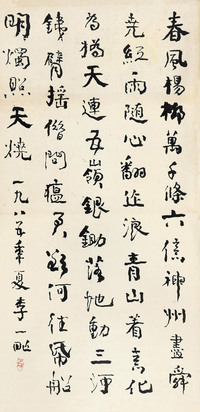 春風楊柳萬千條六億神州盡舜
堯紅雨隨心翻作浪青山着意化
為橋天連五嶺銀鋤落地動三河
鐵臂搖借問瘟君欲何往紙船
明燭照天燒 一九八年夏 李一氓